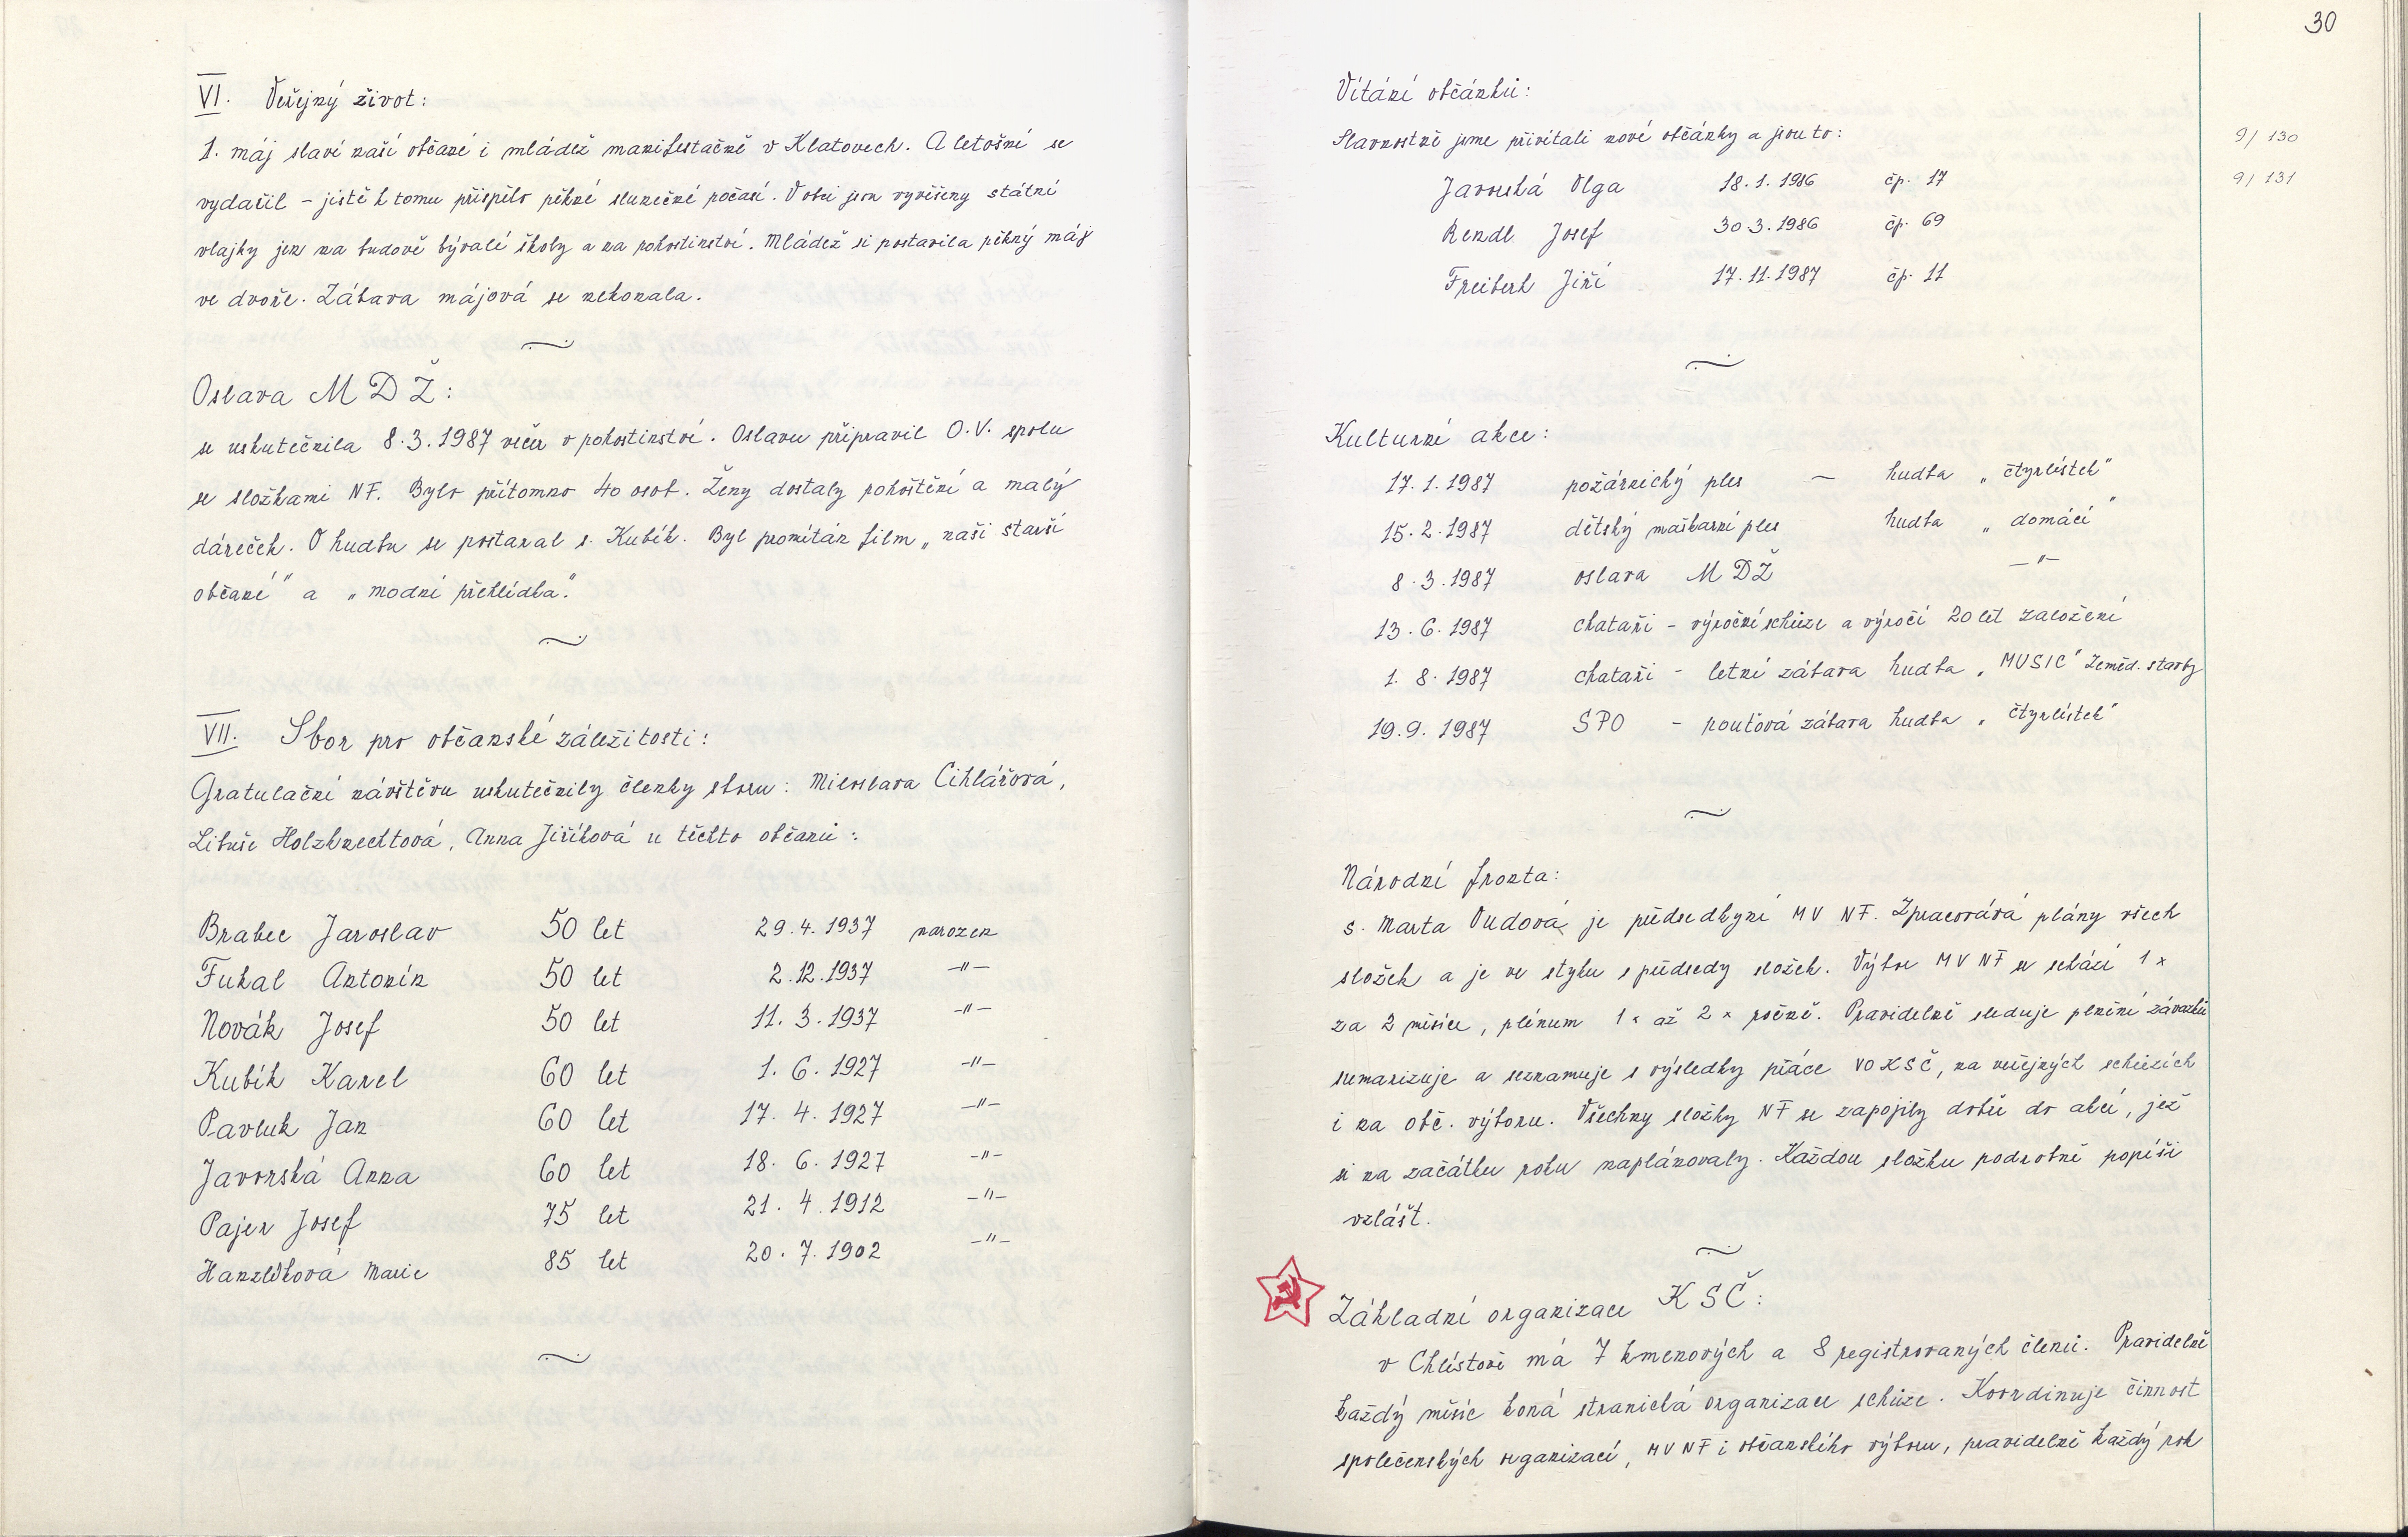 VI. Veřejný život:
1. máj slaví naší občané i mládež manifestačně v Klatovech. A letošní se
vydařil – jistě k tomu přispělo pěkné slunečné počasí. V obci jsou vyvěšeny státní
vlajky jen na budově bývalé školy a na pohostinství. Mládež si postavila pěkný máj
ve dvoře. Zábava májová se nekonala.
Oslava MDŽ:
se uskutečnila 8.3.1987 večer v pohostinství. Oslavu připravil O.V. spolu
se složkami NF. Bylo přítomno 40 osob. Ženy dostaly pohoštění a malý
dáreček. O hudbu se postaral s. Kubík. Byl promítán film „naši starší
občané" a „modní přehlídka".
VII. Sbor pro občanské záležitosti:
Gratulační návštěvu uskutečnily členky sboru: Miloslava Cihlářová,
Libuše Holzknechtová, Anna Jiříková u těchto občanů:
Brabec Jaroslav 50 let 29.4.1937 narozen
Fukal Antonín 50 let 2.12.1937 –"–
Novák Josef 50 let 11.3.1937 –"–
Kubík Karel 60 let 1.6.1927 –"–
Pavluk Jan 60 let 17.4.1927 –"–
Javorská Anna 60 let 18.6.1927 –"–
Pajer Josef 75 let 21.4.1912 –"–
Hanzlíková Marie 85 let 20.7.1902 –"–
30
Vítání občánků:
Slavnostně jsme přivítali nové občánky a jsou to: 9/130
Javorská Olga 18.1.1986 čp. 17 9/131
Rendl Josef 30.3.1986 čp. 69
Freiberk Jiří 17.11.1987 čp. 11
Kulturní akce:
17.1.1987 požárnický ples – hudba „čtyrlístek"
15.2.1987 dětský maškarní ples hudba „domácí"
8.3.1987 oslava MDŽ –"–
13.6.1987 chataři – výroční schůze a výročí 20 let založení
1.8.1987 chataři – letní zábava hudba „MUSIC" Zeměd. stavby
19.9.1987 SPO – pouťová zábava hudba „čtyrlístek"
Národní fronta:
s. Marta Dudová je předsedkyní MV NF. Zpracovává plány všech
složek a je ve styku s předsedy složek. Výbor MV NF se schází 1x
za 2 měsíce, plénum 1x až 2x ročně. Pravidelně sleduje plnění závazků
sumarizuje a seznamuje s výsledky práce VO KSČ, na veřejných schůzích
i na obč. výboru. Všechny složky NF se zapojily dobře do akcí, jež
si na začátku roku naplánovaly. Každou složku podrobně popíši
vzlášť.
Základní organizace KSČ:
v Chlístově má 7 kmenových a 8 registrovaných členů. Pravidelně
každý měsíc koná stranická organizace schůze. Koordinuje činnost
společenských organizací, MV NF i občanského výboru, pravidelně každý rok